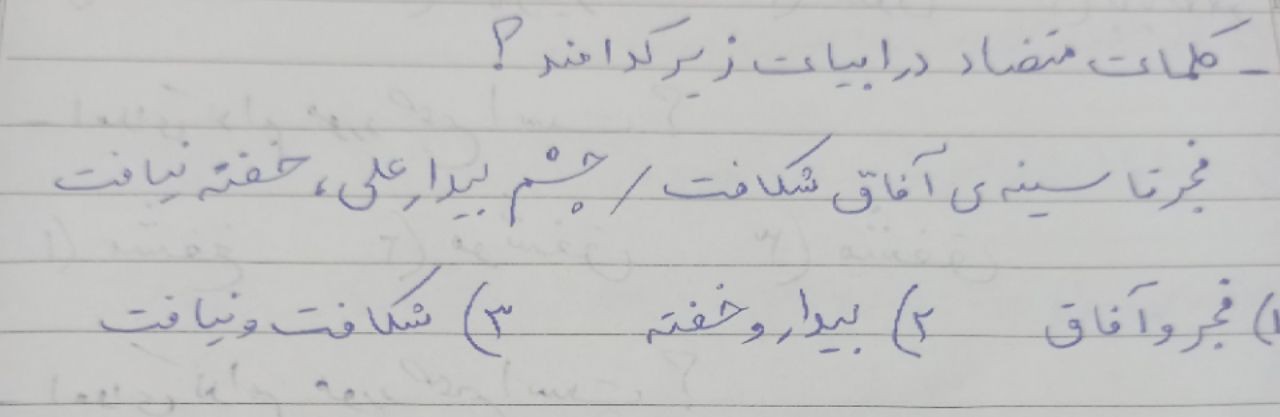 - کلمات متضاد در ابیات زیر کدامند؟
فجر تا سینه ی آفاق شکافت / چشم بیدار علی، خفته نیافت
۱) فجر و آفاق ۲) بیدار و خفته ۳) شکافت و نیافت